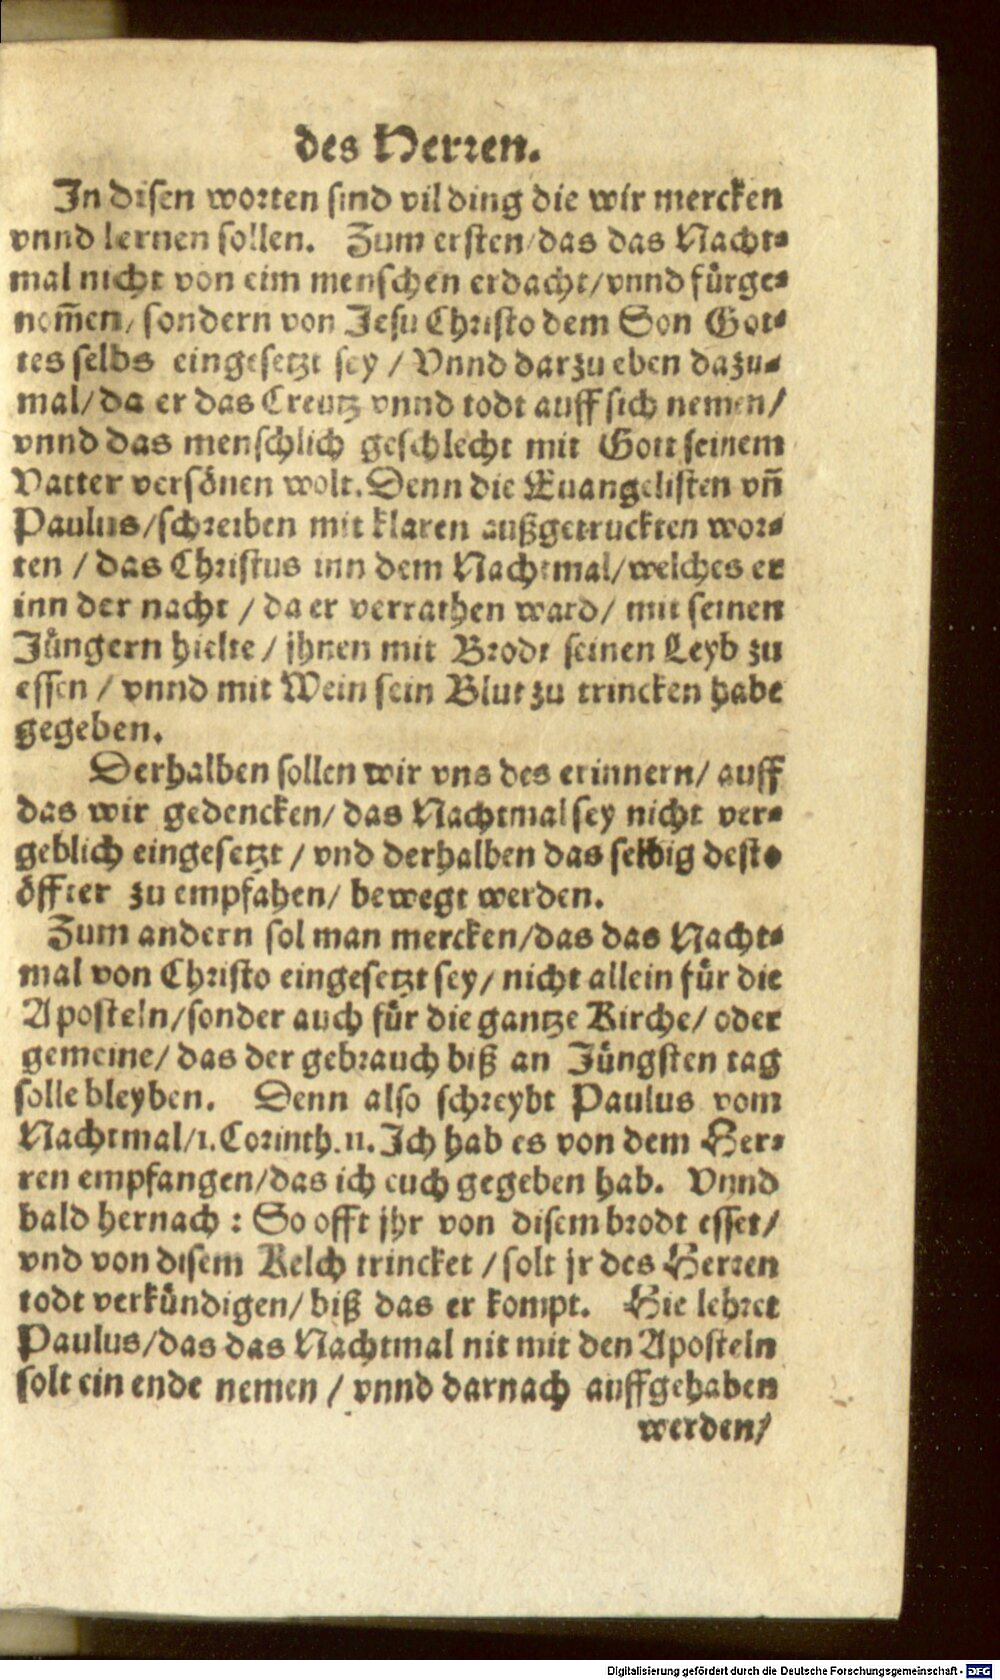 des Herren.
In disen worten sind vil ding die wir mercken
vnnd lernen sollen. Zum ersten/das das Nacht-
mal nicht von eim menschen erdacht/vnnd fürge-
nom̃en/ sondern von Jesu Christo dem Son Got-
tes selbs eingesetzt sey / Vnnd darzu eben dazu-
mal/ da er das Creutz vnnd todt auff sich nemen/
vnnd das menschlich geschlecht mit Gott seinem
Vatter versönen wolt. Denn die Euangelisten vñ
Paulus/schreiben mit klaren außgetruckten wor-
ten / das Christus inn dem Nachtmal/welches er
inn der nacht / da er verrathen ward/ mit seinen
Jüngern hielte / jhnen mit Brodt seinen Leyb zu
essen / vnnd mit Wein sein Blut zu trincken habe
gegeben.
Derhalben sollen wir vns des erinnern/ auff
das wir gedencken/ das Nachtmal sey nicht ver-
geblich eingesetzt / vnd derhalben das selbig desto
öffter zu empfahen/ bewegt werden.
Zum andern sol man mercken/das das Nacht-
mal von Christo eingesetzt sey/ nicht allein für die
Aposteln/sonder auch für die gantze Kirche/ oder
gemeine/ das der gebrauch biß an Jüngsten tag
solle bleyben. Denn also schreybt Paulus vom
Nachtmal/1. Corinth. 11. Ich hab es von dem Her-
ren empfangen/das ich euch gegeben hab. Vnnd
bald hernach : So offt jhr von disem brodt esset/
vnd von disem Kelch trincket / solt jr des Herren
todt verkündigen/ biß das er kompt. Hie lehret
Paulus/das das Nachtmal nit mit den Aposteln
solt ein ende nemen / vnnd darnach auffgehaben
werden/
Digitalisierung gefördert durch die Deutsche Forschungsgemeinschaft - DFG